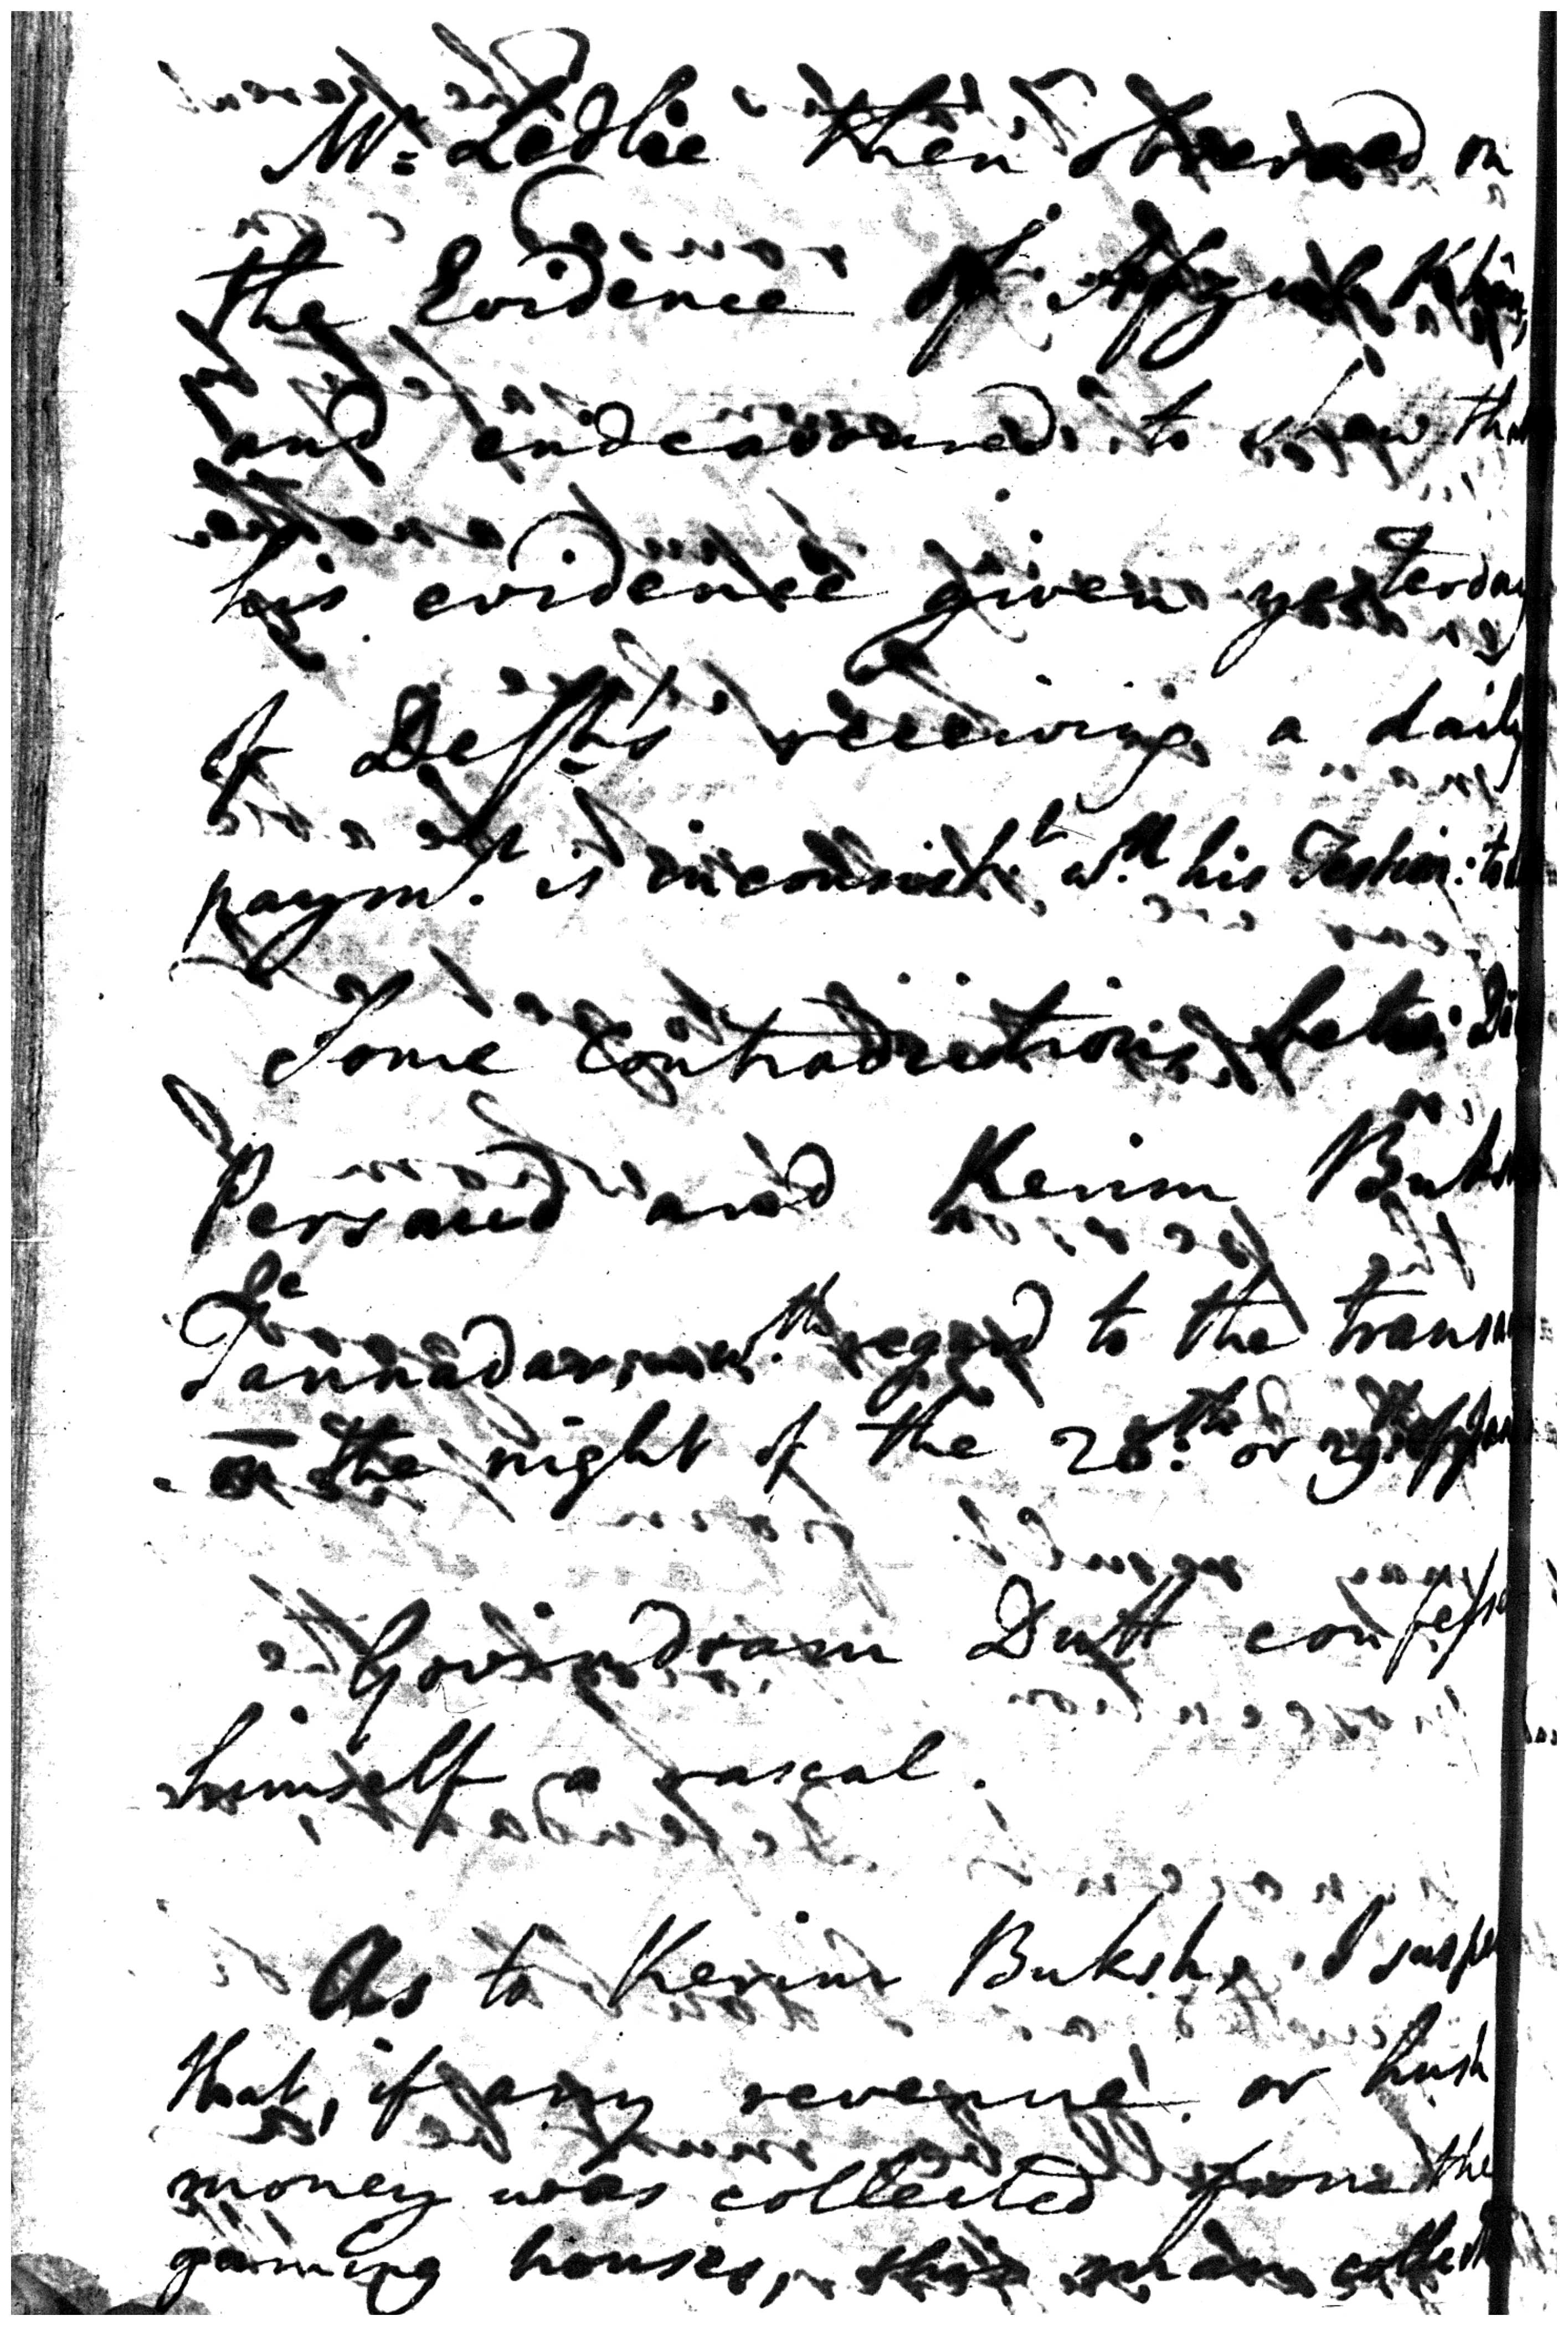 Mr. Ledlie then observed on
the Evidence of Afzul Khan,
and endeavoured to shew that
his evidence given yesterday
of Defts receiving a daily
paymt. is inconsistt. wth. his Testim:
Some Contradictions betw:
Persaud and Kerim Buksh
Tannadar, wth. regard to the
on the night of the 28th. or 29th. of
Govindram Dutt
himself a rascal.
As to Kerim Buksh, I
that, if any revenue or hush
money was collected from the
gaming houses, this man